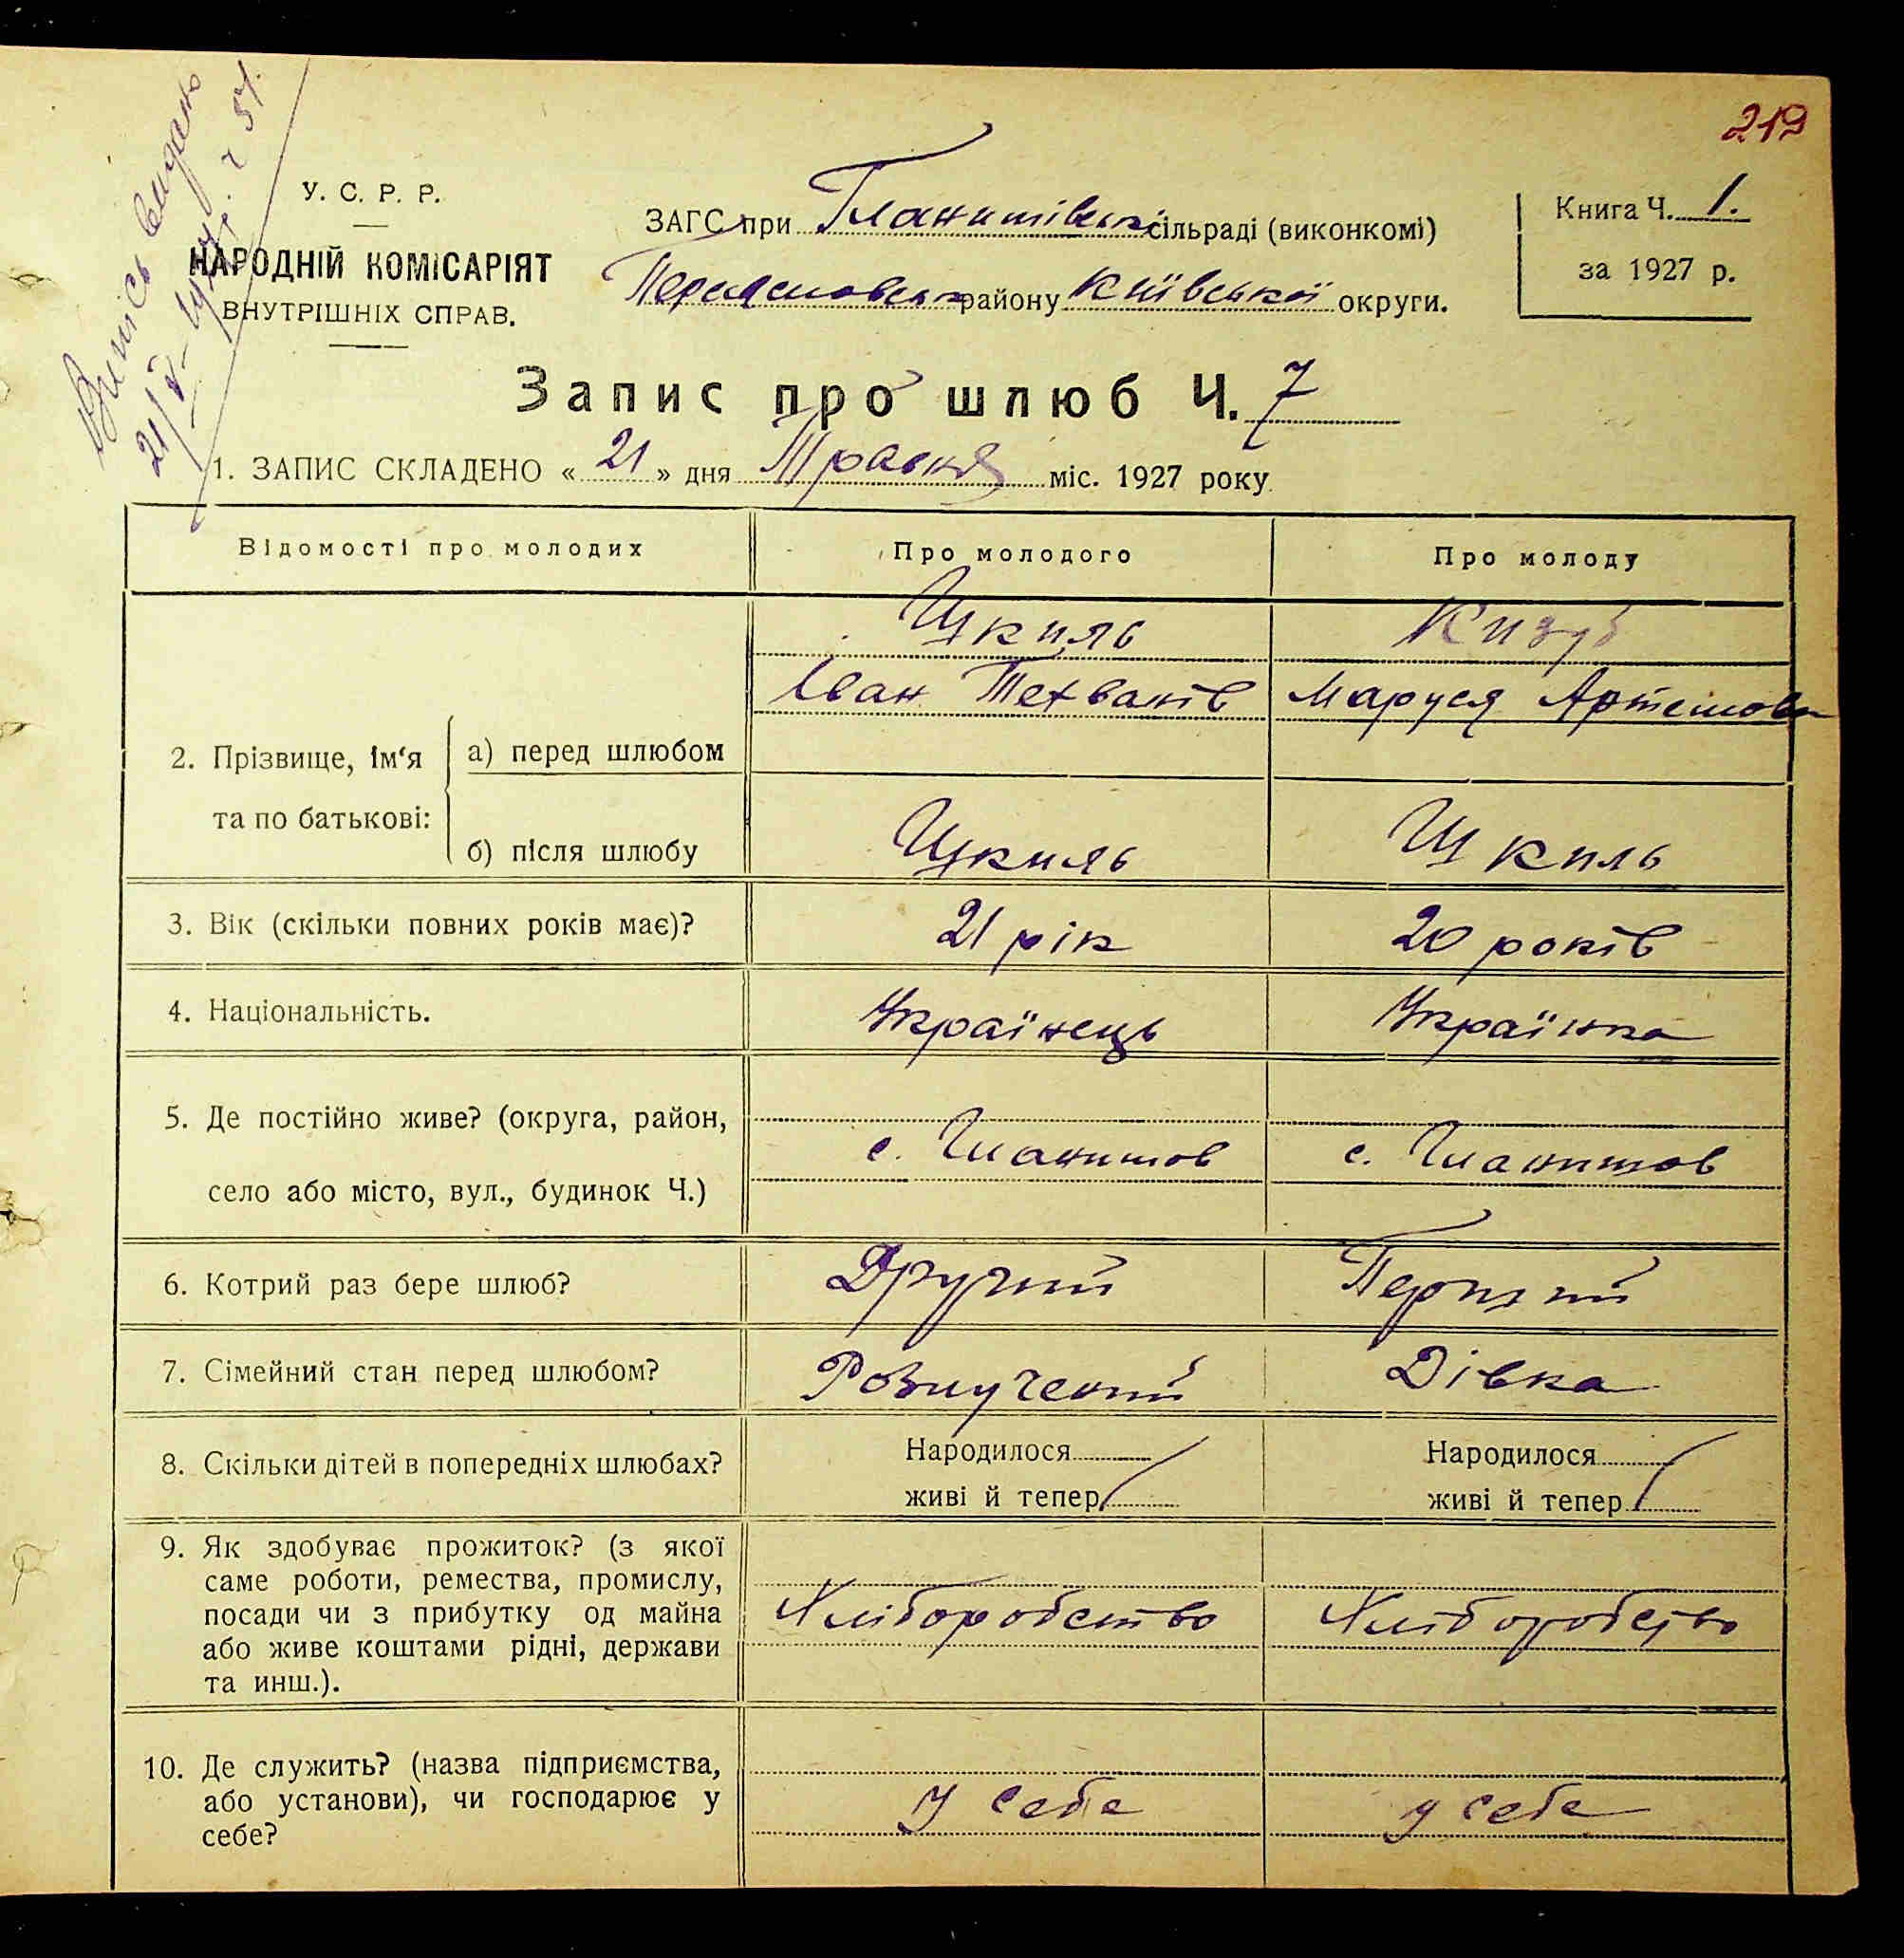 219
Випись видано
У. С. Р. Р.
НАРОДНІЙ КОМІСАРІЯТ
ВНУТРІШНІХ СПРАВ.
ЗАГС при Гланишівськ сільраді (виконкомі)
Переяславськ району Київської округи.
Книга Ч. 1.
за 1927 р.
Запис про шлюб Ч. 7
1. ЗАПИС СКЛАДЕНО « 21 » дня Травня міс. 1927 року
Відомості про молодих
Про молодого
Про молоду
2. Прізвище, ім‘я
та по батькові:
а) перед шлюбом
Шкиль
Іван
Кизуб
Маруся Артемова
б) після шлюбу
Шкиль
Шкиль
3. Вік (скільки повних років має)?
21 рік
20 років
4. Національність.
Українець
Українка
5. Де постійно живе? (округа, район,
село або місто, вул., будинок Ч.)
с. Гланишов
с. Гланишов
6. Котрий раз бере шлюб?
Другий
Перший
7. Сімейний стан перед шлюбом?
Розлучений
Дівка
8. Скільки дітей в попередніх шлюбах?
Народилося
живі й тепер
Народилося
живі й тепер
9. Як здобуває прожиток? (з якої
саме роботи, ремества, промислу,
посади чи з прибутку од майна
або живе коштами рідні, держави
та инш.).
Хліборобство
Хліборобство
10. Де служить? (назва підприємства,
або установи), чи господарює у
себе?
У себе
у себе